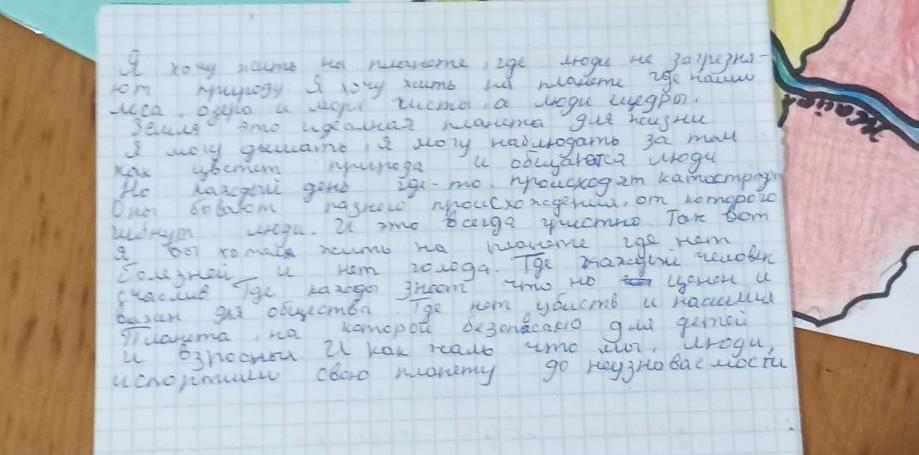 Я хочу жить на планете, где люди не загрезня-
ют природу Я хочу жить на планете где наши
леса, озера и моря чисты, а люди щедры.
Земля это идеалная планета для жизни
Я могу дышать, я могу наблюдать за тем
как цветет природа и общаются люди
Но каждый день где-то происходят катострофы
Оны бывают разного происхождения, от которого
гибнут люди. И это всегда грустно. Так вот
Я бы хотела жить на планете где нет
болезней и нет голода. Где каждый человек
счаслив Где кажды знает что но ценен и
важен для общества. Где нет убийств и насилия
Планета на которой безопасаю для детей
и взрослый И как жаль что мы, люди,
испортили свою планету до неузноваемости
Жайық